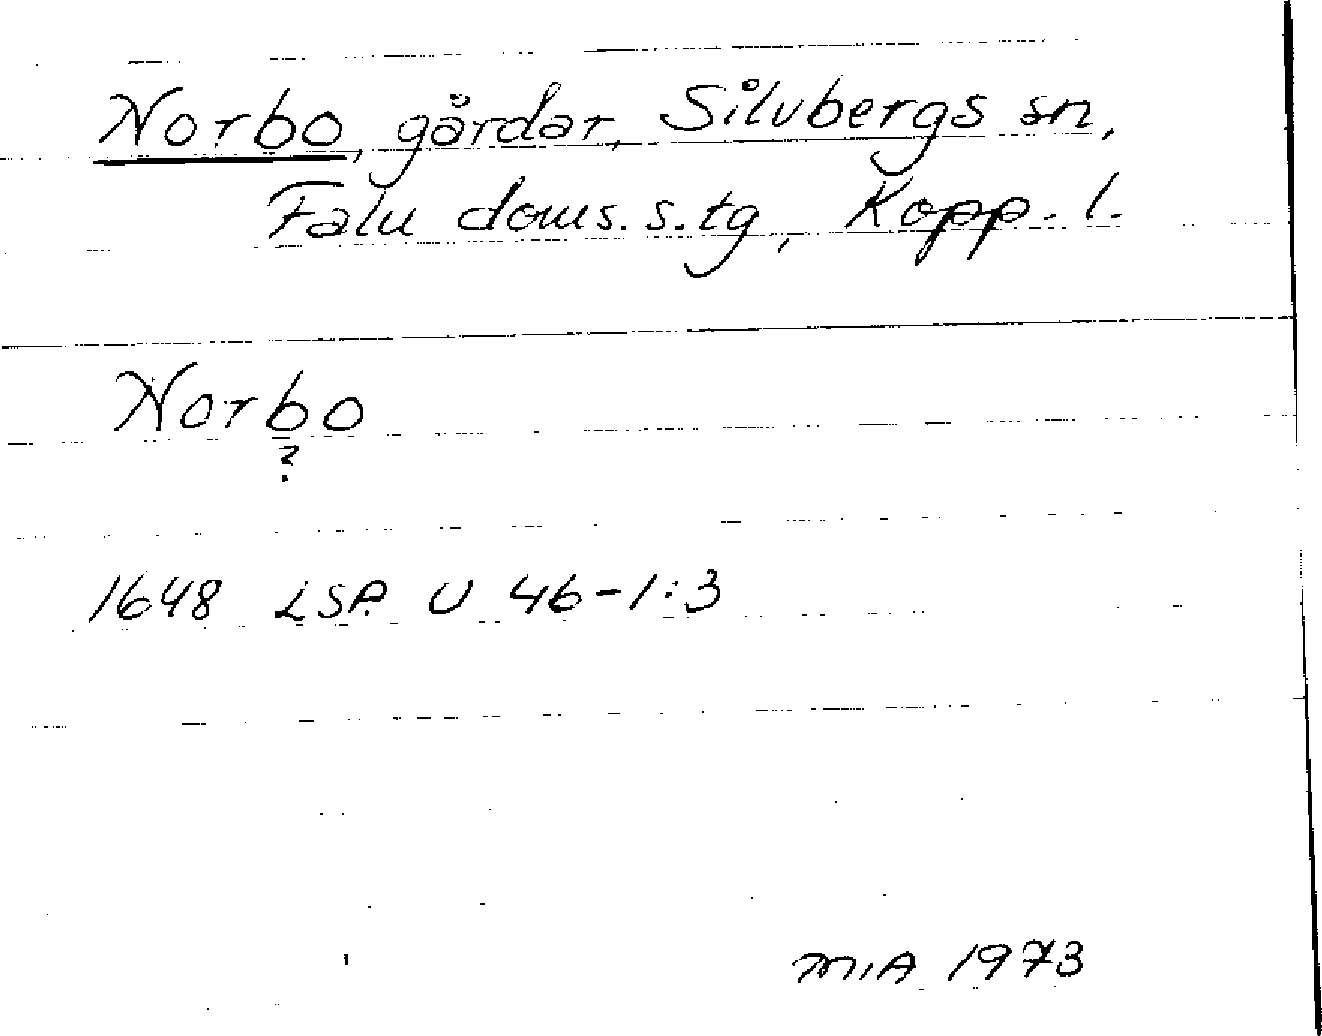 Norbo, gårdar, Silvbergs sn,
Falu doms.s.tg, Kopp. l.
Norbo
?
1648 LSA U 46-1:3
MIA 1973